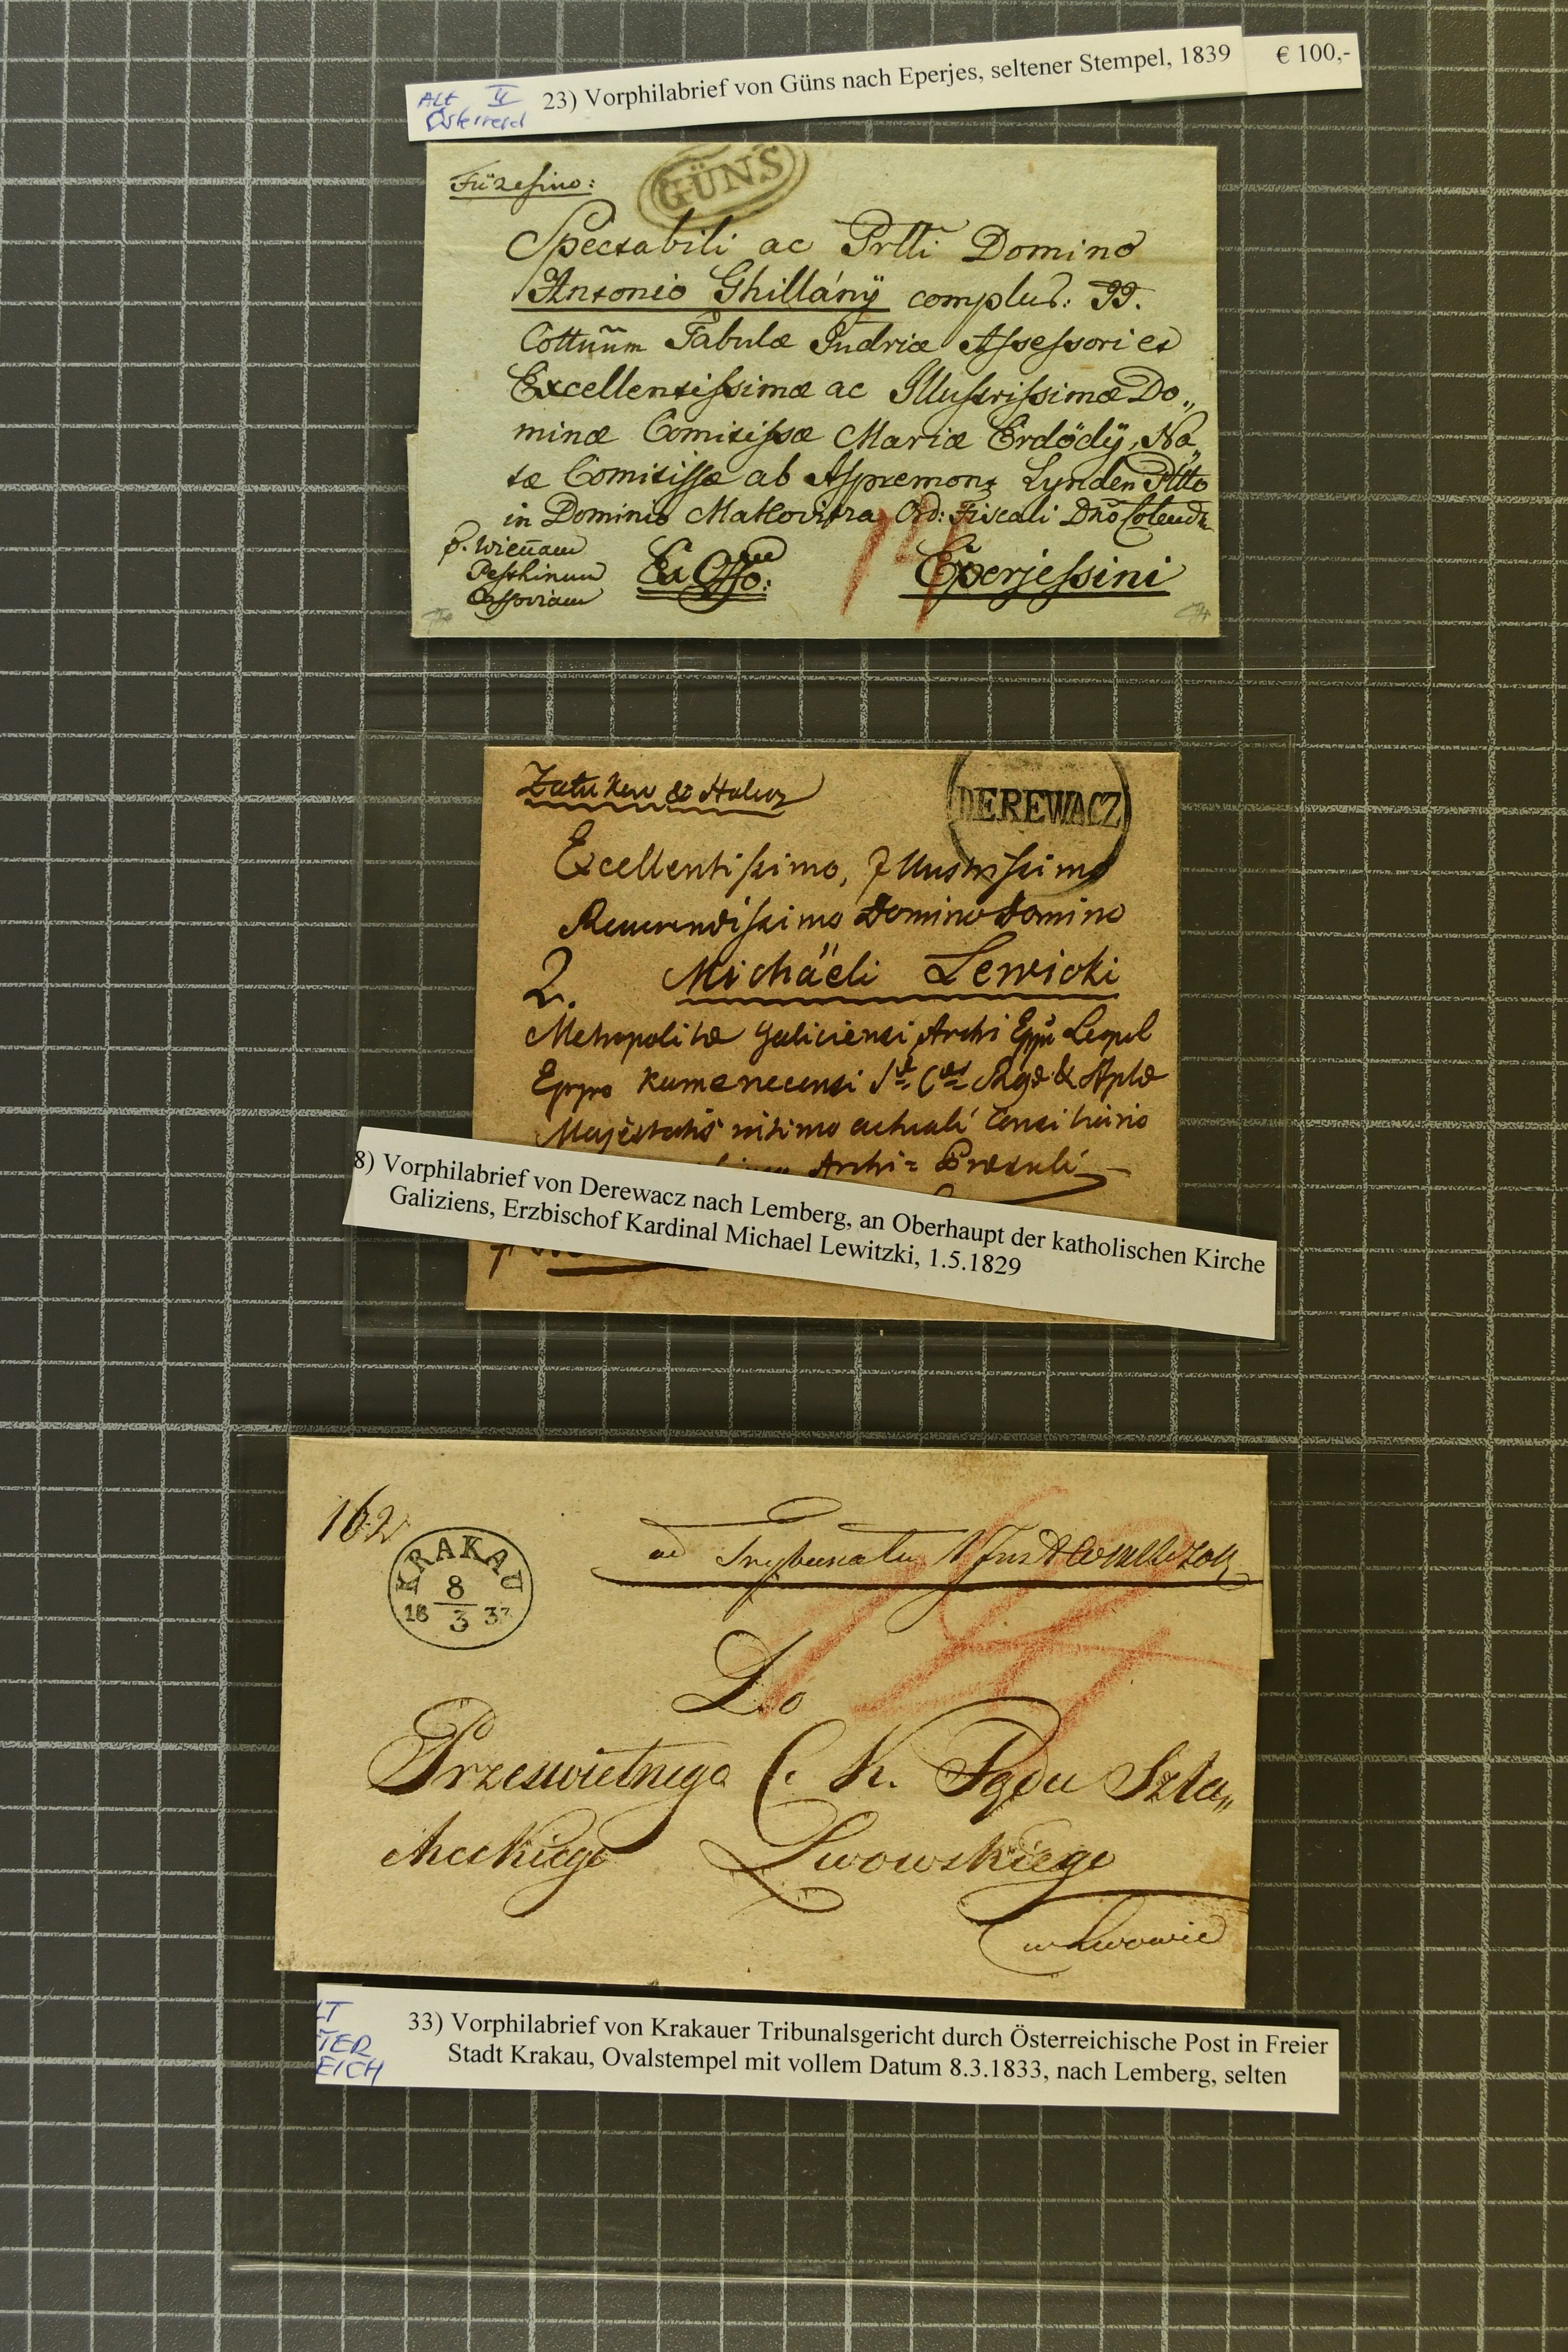 Alt II
Österreich
23) Vorphilabrief von Güns nach Eperjes, seltener Stempel, 1839
€ 100,-
GÜNS
Spectabili ac Prlli Domino
Antonio Ghillány complur: II.
Cottuum Tabulæ Judriæ Assessori et
Excellentissimæ ac Illustrissimæ Do„
minæ Comitissæ Mariæ Erdödÿ, Na„
tæ Comitissæ ab Aspremont Lynden
in Dominio Makovitza Ord: Fiscali Dno
p. Viennam
Pesthinum
Cassoviam
Ex Offo:
14
Eperjessini
DEREWACZ
Excellentissimo, Illustrissimo
Reverendissimo Domino Domino
2. Michäeli Lewicki
Metropolitæ Galiciensi Archi Eppo Leopol
Eppro Kamenecensi &
Majestatis intimo actuali Consiliario
Archi= Præsuli
8) Vorphilabrief von Derewacz nach Lemberg, an Oberhaupt der katholischen Kirche
Galiziens, Erzbischof Kardinal Michael Lewitzki, 1.5.1829
162
KRAKAU
8
18 3 33
od Trybunału
Do
Prześwietnego C. K. Sądu Szla„
checkiego Lwowskiego
w Lwowie
LT
TER
EICH
33) Vorphilabrief von Krakauer Tribunalsgericht durch Österreichische Post in Freier
Stadt Krakau, Ovalstempel mit vollem Datum 8.3.1833, nach Lemberg, selten